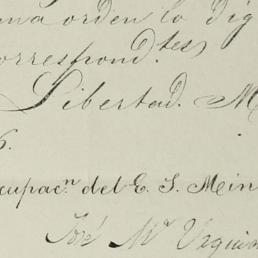 ma orden lo dig
orrespond.tes
Libertad. M
6.
cupac.n del E. S. Min
José M.a